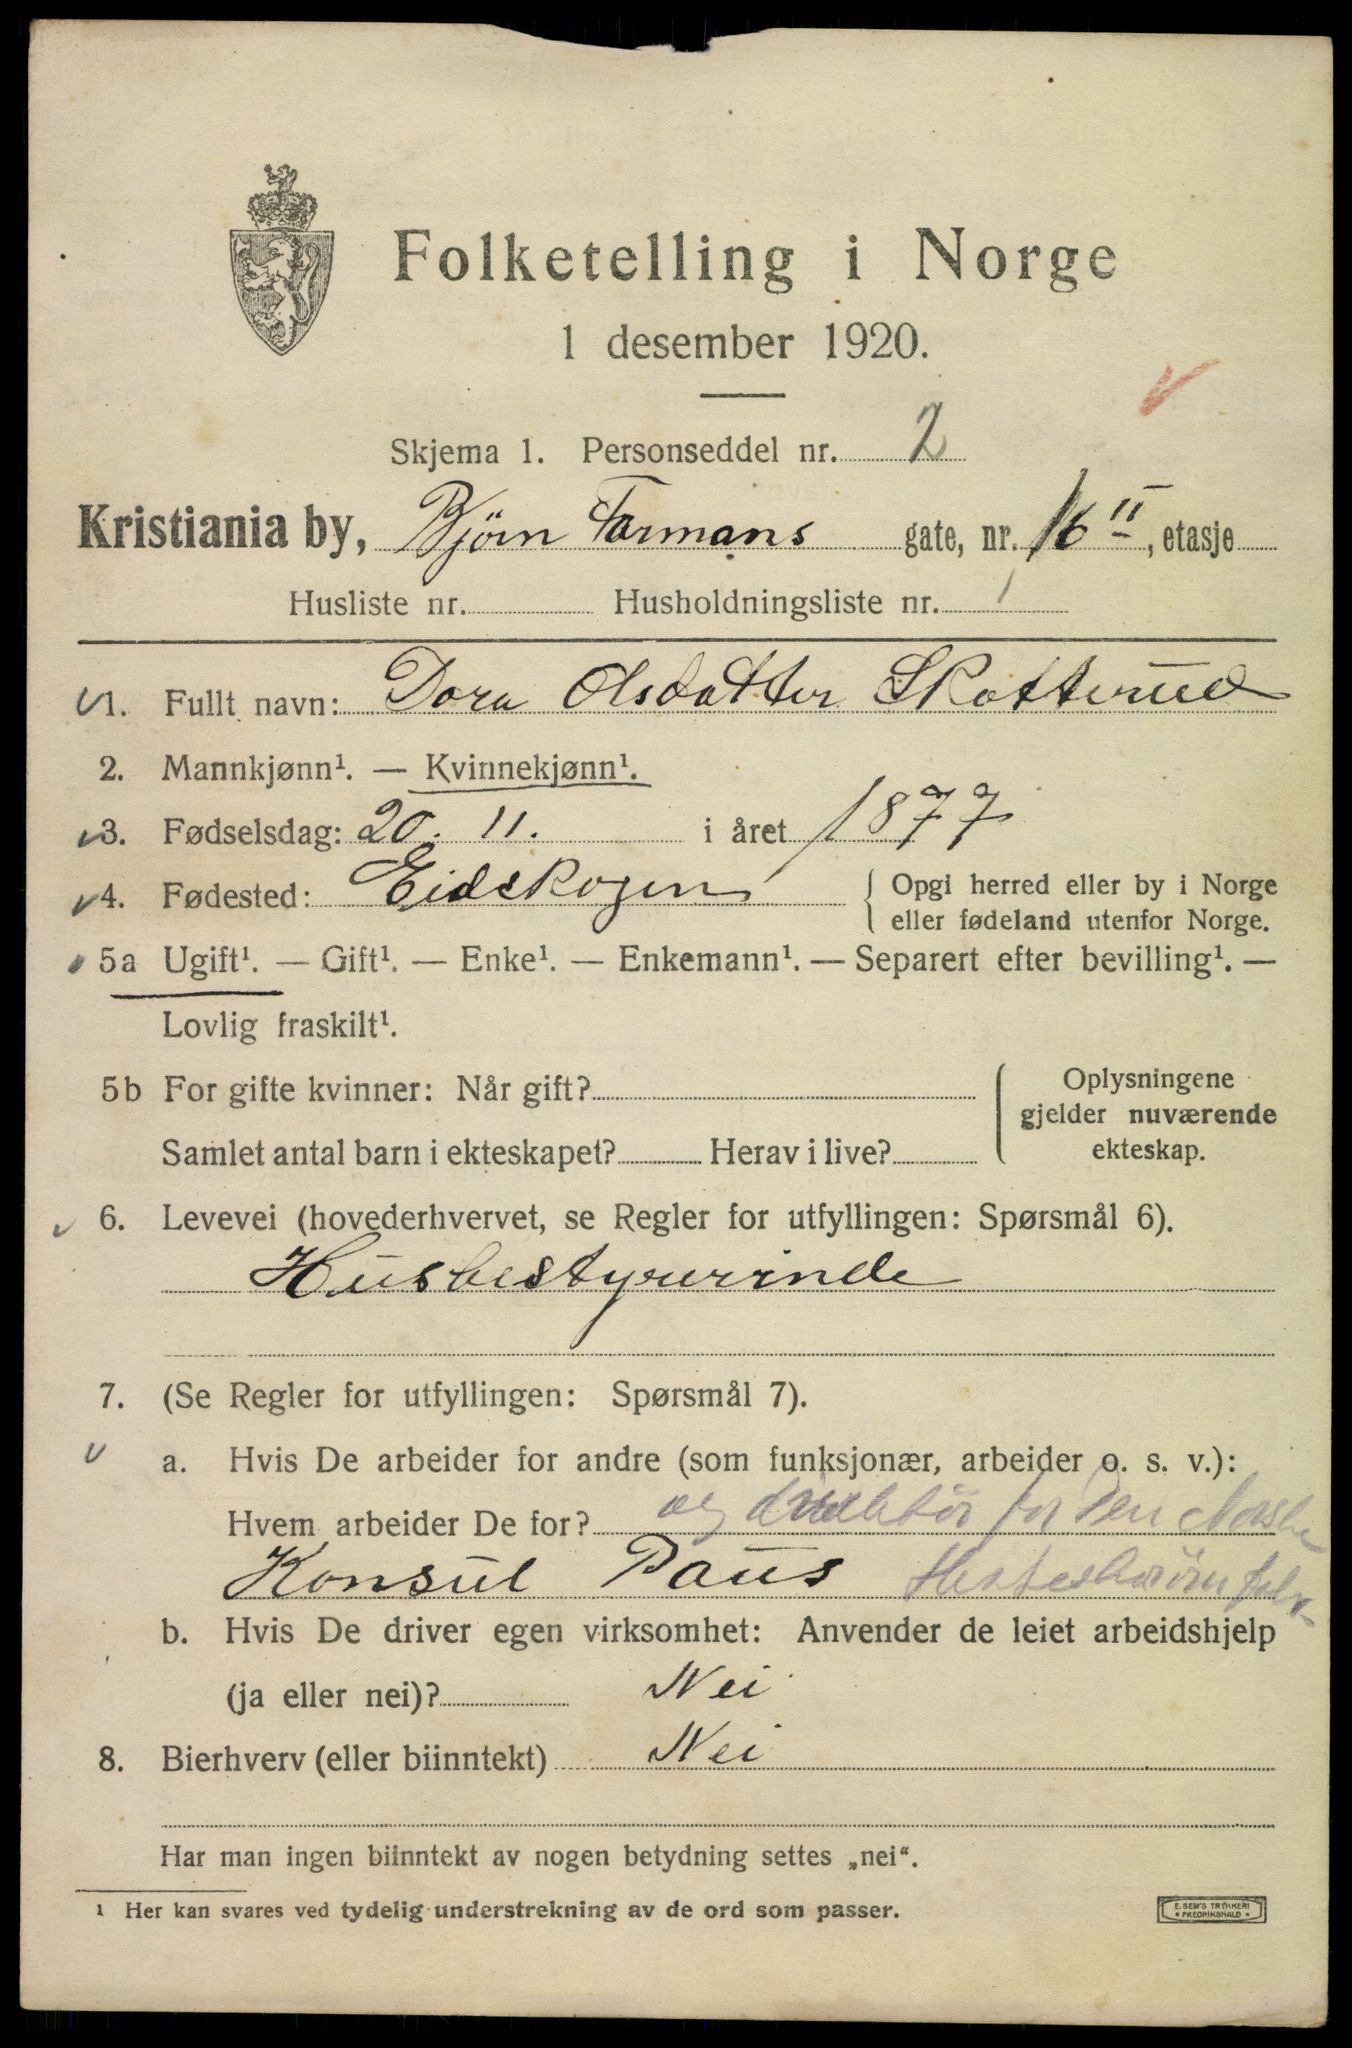 Folketelling i Norge
1 desember 1920.
Skjema 1. Personseddel nr. 2
Kristiania by, Bjørn Farmans gate, nr. 16 II, etasje
Husliste nr. Husholdningsliste nr. 1
1. Fullt navn: Dora Olsdatter Skotterud
2. Mannkjønn¹. — Kvinnekjønn¹.
3. Fødselsdag: 20. 11. i året 1877
4. Fødested: Eidskogen { Opgi herred eller by i Norge
eller fødeland utenfor Norge.
5a Ugift¹. — Gift¹. — Enke¹. — Enkemann¹. — Separert efter bevilling¹. —
Lovlig fraskilt¹.
5b For gifte kvinner: Når gift?
Samlet antal barn i ekteskapet? Herav i live?
Oplysningene
gjelder nuværende
ekteskap.
6. Levevei (hovederhvervet, se Regler for utfyllingen: Spørsmål 6).
Husbestyrerinde
7. (Se Regler for utfyllingen: Spørsmål 7).
a. Hvis De arbeider for andre (som funksjonær, arbeider o. s. v.):
Hvem arbeider De for? og direktør for Den Norske
Konsul Paus
b. Hvis De driver egen virksomhet: Anvender de leiet arbeidshjelp
(ja eller nei)? Nei
8. Bierhverv (eller biinntekt) Nei
Har man ingen biinntekt av nogen betydning settes „nei“.
¹ Her kan svares ved tydelig understrekning av de ord som passer.
E. SEM'S TRYKKERI
FREDRIKSHALD